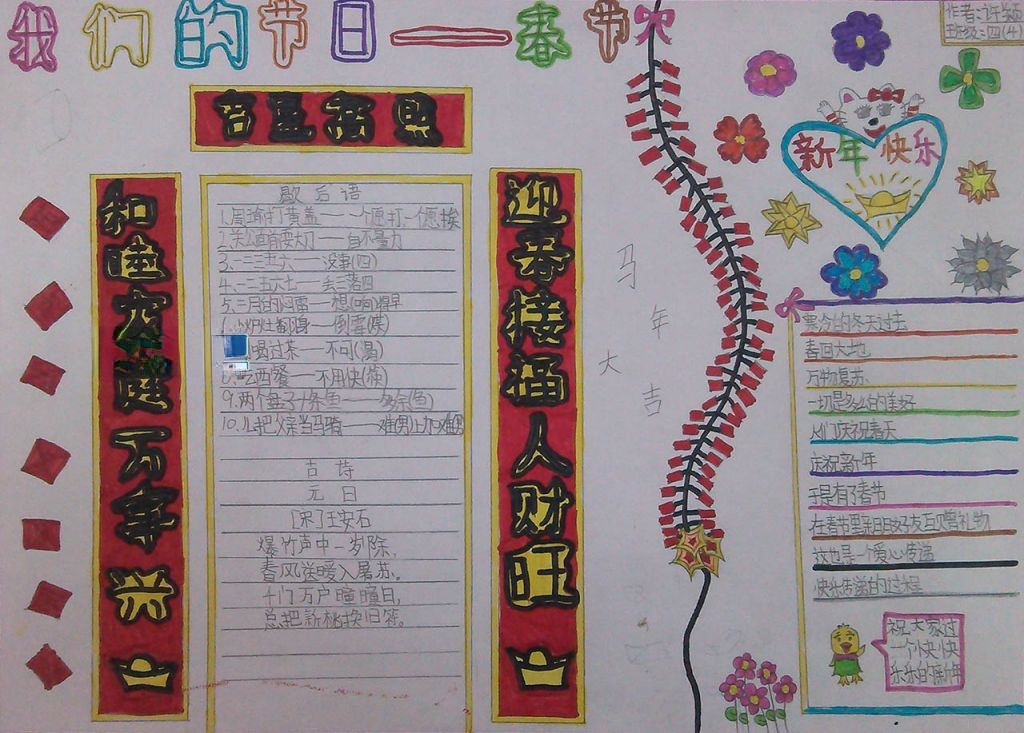 我们的节日——春节
作者:许颖
班级:四(4)
新年快乐
吉星福照
和睦家庭万事兴
迎春接福人财旺
歇后语
1.周瑜打黄盖——一个愿打一愿挨
2.关公面前耍大刀——自不量力
3.一二三五六——没事(四)
4.一二五六七——丢三落四
5.三月的闷雷——想(响)得早
炉灶翻身——倒霉(煤)
喝过茶——不可(渴)
吃西餐——不用快(筷)
9.两个盘子十条鱼——多余(鱼)
10.儿把父亲当马骑——难(男)上加难
古诗
元日
[宋]王安石
爆竹声中一岁除,
春风送暖入屠苏。
千门万户曈曈日,
总把新桃换旧符。
马年大吉
寒冷的冬天过去
春回大地
万物复苏、
一切是多么的美好
人们庆祝春天
庆祝新年
于是有了春节
在春节里亲朋好友互赠礼物
这也是一个爱心传递
快乐传递的过程
祝大家过
一个快快
乐乐的新年